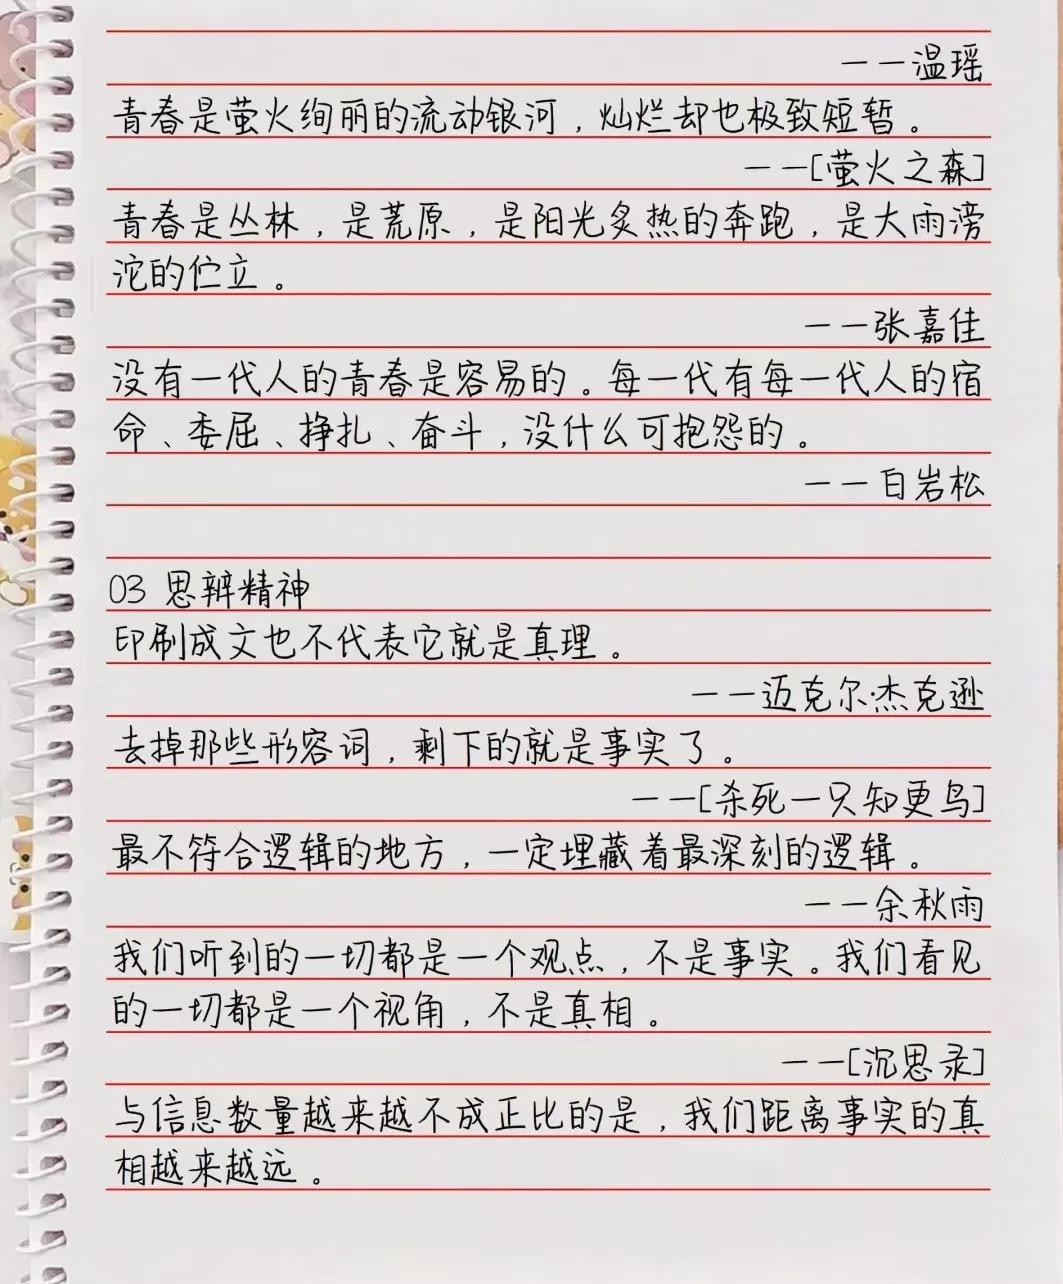 ——温瑶
青春是萤火绚丽的流动银河，灿烂却也极致短暂。
——[萤火之森]
青春是丛林，是荒原，是阳光炙热的奔跑，是大雨滂
沱的伫立。
——张嘉佳
没有一代人的青春是容易的。每一代有每一代人的宿
命、委屈、挣扎、奋斗，没什么可抱怨的。
——白岩松
03 思辨精神
印刷成文也不代表它就是真理。
——迈克尔·杰克逊
去掉那些形容词，剩下的就是事实了。
——[杀死一只知更鸟]
最不符合逻辑的地方，一定埋藏着最深刻的逻辑。
——余秋雨
我们听到的一切都是一个观点，不是事实。我们看见
的一切都是一个视角，不是真相。
——[沉思录]
与信息数量越来越不成正比的是，我们距离事实的真
相越来越远。